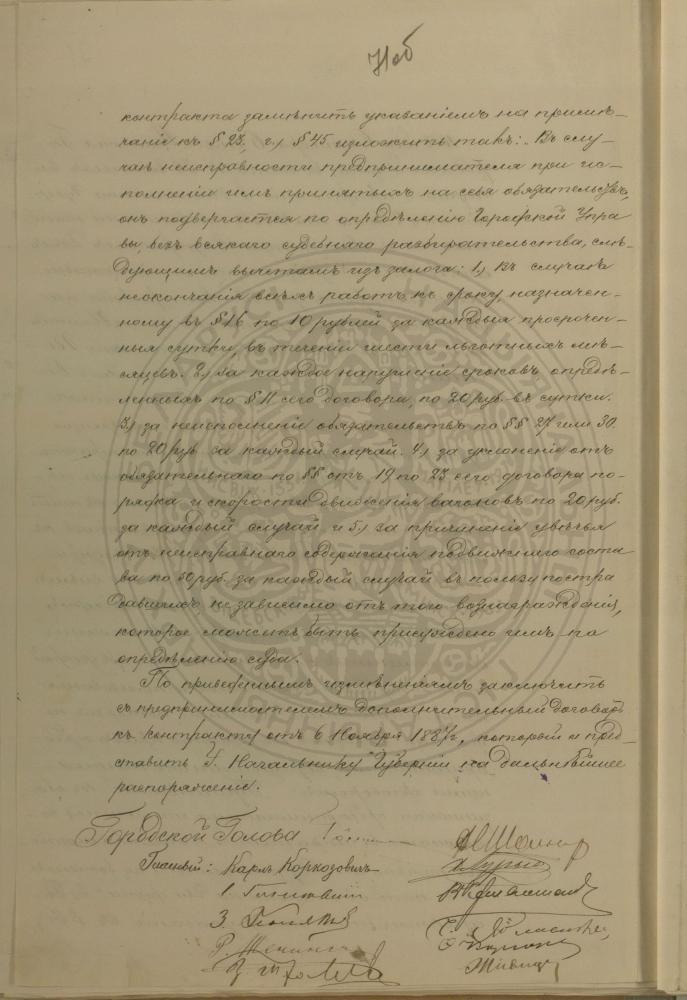 контракта замѣнить указаніемъ на примѣ-
чаніе къ § 23, г.) § 45 изложить такъ: „Въ слу-
чаѣ неисправности предпринимателя при ис-
полненіи имъ принятыхъ на себя обязательствъ,
онъ подвергается по опредѣленію Городской Упра
вы, безъ всякаго судебнаго разбирательства, слѣ-
дующимъ вычетамъ изъ залога: 1.) Въ случаѣ
неокончанія всѣхъ работъ къ сроку, назначен-
ному въ § 16 по 10 рублей за каждыя просрочен-
ныя сутки, въ теченіи шести льготныхъ мѣ-
сяцевъ. 2.) за каждое нарушеніе сроковъ опредѣ-
ленныхъ по § 11 сего договора, по 20 руб. въ сутки.
3.) за неисполненіе обязательствъ по §§ 27 или 30
по 20 руб. за каждый случай. 4.) за уклоненіе отъ
обязательнаго по §§ отъ 19 по 23 сего договора по-
рядка и скорости движенія вагоновъ по 20 руб.
за каждый случай и 5.) за причиненіе увѣчья
отъ неисправнаго содержанія подвижнаго соста
ва по 50 руб. за каждый случай въ пользу постра
давшихъ независимо отъ того вознагражденія,
которое можетъ быть присуждено имъ по
опредѣленію суда.
По приведеннымъ измѣненіямъ заключить
съ предпринимателемъ дополнительный договоръ
къ контракту отъ 6 Ноября 1887 г., который и пред-
ставить Г. Начальнику Губерніи на дальнѣйшее
распоряженіе.
Городской Голова
Гласный: Карлъ Коркозовичъ